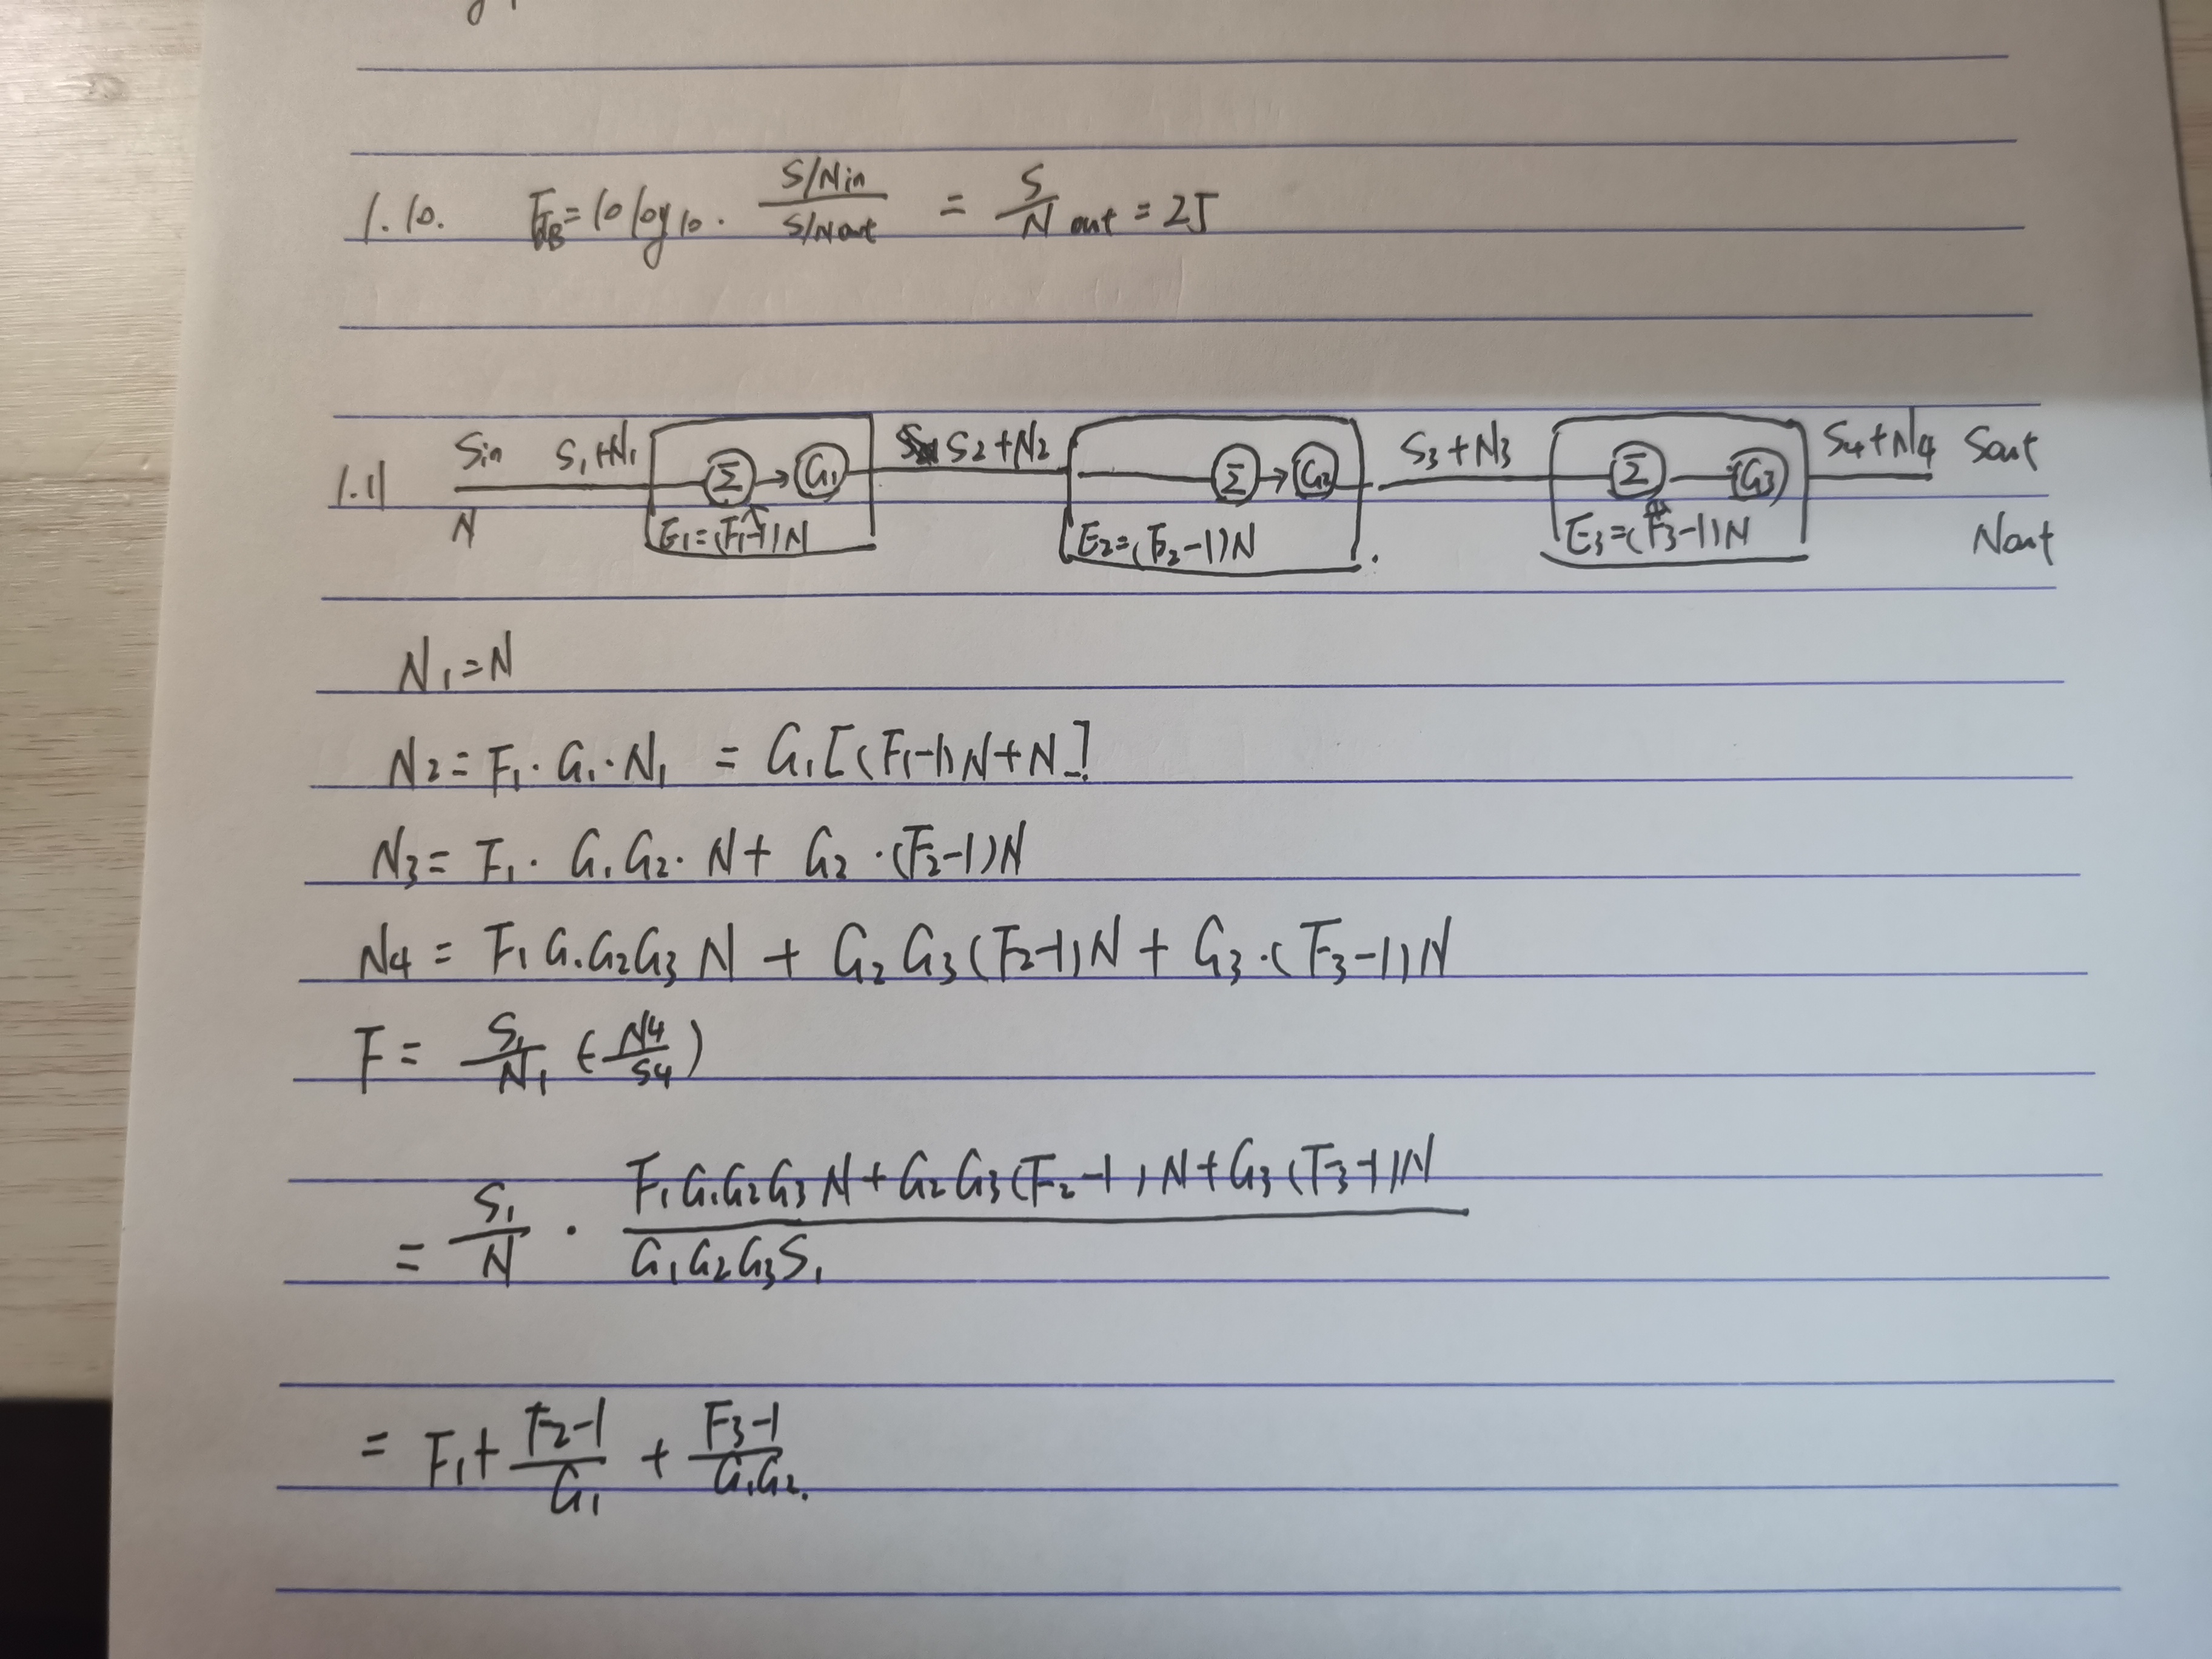 1.10. F_dB = 10 log₁₀ · (S/Nin)/(S/Nout) = S/N out = 25
1.11 Sin S₁+N₁ Σ → G₁ S₂+N₂ Σ → G₂ S₃+N₃ Σ — G₃ S₄+N₄ Sout
N E₁=(F₁-1)N E₂=(F₂-1)N E₃=(F₃-1)N Nout
N₁=N
N₂= F₁·G₁·N₁ = G₁[(F₁-1)N+N]
N₃= F₁· G₁G₂· N+ G₂·(F₂-1)N
N₄ = F₁G₁G₂G₃ N + G₂G₃(F₂-1)N + G₃·(F₃-1)N
F = S₁/N₁ (N₄/S₄)
= S₁/N · (F₁G₁G₂G₃N+G₂G₃(F₂-1)N+G₃(F₃-1)N)/(G₁G₂G₃S₁)
= F₁+ (F₂-1)/G₁ + (F₃-1)/(G₁G₂).